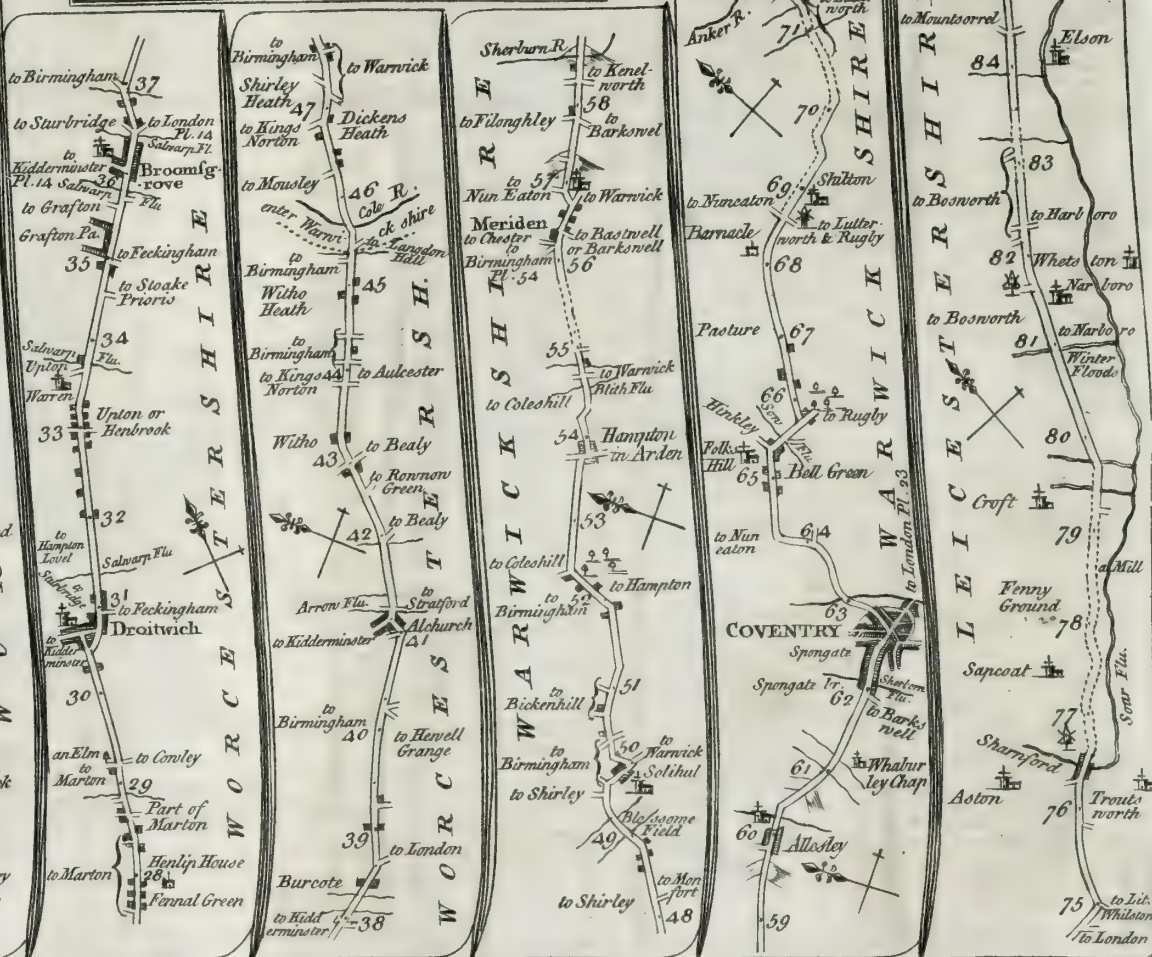 to Birmingham
37
to Sturbridge
to London
Pl. 14
Salwarp Fl.
to
Kidderminster
Pl. 14
Salwarp
Flu
36
Broomsg-
rove
to Grafton
Grafton Pa.
to Feckingham
35
to Stoake
Prioris
34
Salwarp
Flu.
Upton
Warren
Upton or
Henbrook
33
32
to
Hampton
Lovel
Salwarp Flu
to
Sturbridge
31
to Feckingham
Droitwich
to
Kidder
minster
30
an Elm
to Cowley
to
Marton
29
Part of
Marton
to Marton
Henlip House
28
Fennal Green
WORCESTERSHIRE
to
Birmingham
to Warwick
Shirley
Heath
47
Dickens
Heath
to Kings
Norton
to Mousley
46
Cole R.
enter Warwi
ck shire
to
Birmingham
Langdon
Hall
45
Witho
Heath
to
Birmingham
to Kings
Norton
44
to Aulcester
Witho
43
to Bealy
to Rownow
Green
to Bealy
42
Arrow Flu.
to
Stratford
to Kidderminster
Alchurch
41
to
Birmingham
40
to Hewell
Grange
39
to London
Burcote
to Kidd
erminster
38
WORCESTERSH.
Sherburn R.
to Kenel-
worth
58
to Filonghley
to
Barkswel
57
to
Nun Eaton
to Warwick
Meriden
to Chester
to Bastwell
or Barkswell
to
Birmingham
Pl. 54
56
55
to Warwick
Blith Flu
to Coleshill
54
Hampton
in Arden
53
to Coleshill
to
Birmingham
52
to Hampton
51
to
Bickenhill
50
to
Warwick
to
Birmingham
Solihul
to Shirley
Blossome
Field
49
to Mon
fort
to Shirley
48
WARWICKSHIRE
Anker R.
worth
71
70
69
Shilton
to Nuneaton
to Lutter-
worth & Rugby
Barnacle
68
Pasture
67
66
Sow
Flu
to Rugby
Hinkley
Folks
Hill
65
Bell Green
64
to Nun
eaton
63
to London Pl. 23
COVENTRY
Spongate
Spongate br.
Sherborn
Flu.
62
to Barks
well
61
Whabur
ley Chap
60
Allesley
59
WARWICKSHIRE
to Mountsorrel
Elson
84
83
to Bosworth
to Harboro
82
Whetston
Narboro
to Bosworth
to Narboro
81
Winter
Floods
80
Croft
79
a Mill
Fenny
Ground
78
Sapcoat
Soar Flu.
77
Sharnford
Aston
76
Trouts
worth
75
to Lit.
Whilston
to London
LEICESTERSHIR